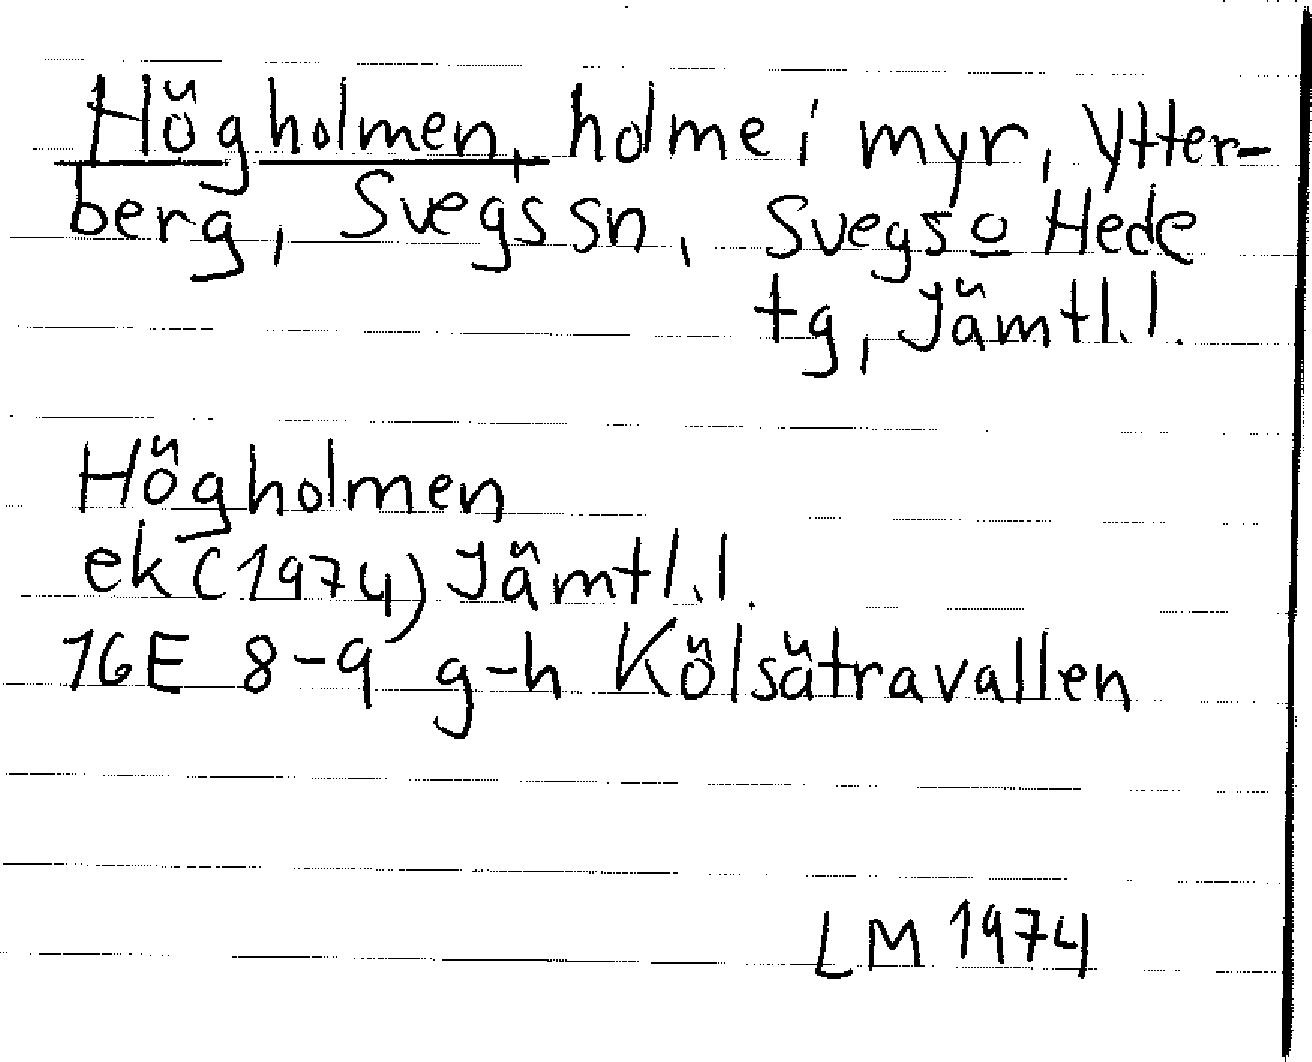 Högholmen, holme i myr, Ytter-
berg, Svegs sn, Svegs o Hede
tg, Jämtl. l.
Högholmen
ek (1974) Jämtl. l.
16E 8-9 g-h Kölsätravallen
LM 1974